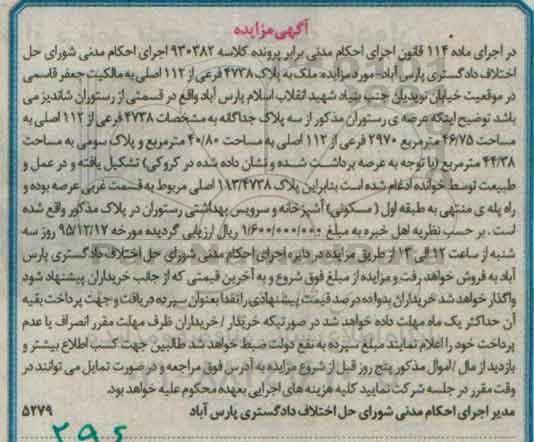 آگهی مزایده
در اجرای ماده ۱۱۴ قانون اجرای احکام مدنی برابر پرونده کلاسه ۹۳۰۳۸۲ اجرای احکام مدنی شورای حل
اختلاف دادگستری پارس آباد- مورد مزایده ملک به پلاک ۴۷۳۸ فرعی از ۱۱۲ اصلی به مالکیت جعفر قاسمی
در موقعیت خیابان نویدیان جنب بنیاد شهید انقلاب اسلام پارس آباد واقع در قسمتی از رستوران شاندیز می
باشد توضیح اینکه عرصه ی رستوران مذکور از سه پلاک جداگانه به مشخصات ۴۷۳۸ فرعی از ۱۱۲ اصلی به
مساحت ۴۶/۷۵ مترمربع ۲۹۷۰ فرعی از ۱۱۲ اصلی به مساحت ۴۰/۸۰ مترمربع و پلاک سومی به مساحت
۴۴/۳۸ مترمربع (با توجه به عرصه برداشت شده و نشان داده شده در کروکی) تشکیل یافته و در عمل و
طبیعت توسط خوانده ادغام شده است بنابراین پلاک ۱۱۳/۴۷۳۸ اصلی مربوط به قسمت غربی عرصه بوده و
راه پله ی منتهی به طبقه اول (مسکونی) آشپزخانه و سرویس بهداشتی رستوران در پلاک مذکور واقع شده
است . بر حسب نظریه اهل خبره به مبلغ ۱/۶۰۰/۰۰۰/۰۰۰ ریال ارزیابی گردیده مورخه ۹۵/۱۲/۱۷ روز سه
شنبه از ساعت ۱۲ الی ۱۳ از طریق مزایده در دایره اجرای احکام مدنی شورای حل اختلاف دادگستری پارس
آباد به فروش خواهد رفت و مزایده از مبلغ فوق شروع و به آخرین قیمتی که از جانب خریداران پیشنهاد شود
واگذار خواهد شد خریداران بدوا ده درصد قیمت پیشنهادی را نقدا بعنوان سپرده دریافت و جهت پرداخت بقیه
آن حداکثر یک ماه مهلت داده خواهد شد در صورتیکه خریدار / خریداران ظرف مهلت مقرر انصراف یا عدم
پرداخت خود را اعلام نمایند مبلغ سپرده به نفع دولت ضبط خواهد شد طالبین جهت کسب اطلاع بیشتر و
بازدید از مال /اموال مذکور پنج روز قبل از شروع مزایده به آدرس فوق مراجعه و در صورت تمایل می توانند در
وقت مقرر در جلسه شرکت نمایید کلیه هزینه های اجرایی بعهده محکوم علیه خواهد بود.
مدیر اجرای احکام مدنی شورای حل اختلاف دادگستری پارس آباد ۵۲۷۹